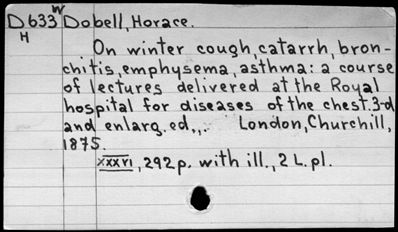 W
D633 Dobell, Horace.
H
On winter cough, catarrh, bron-
chitis, emphysema, asthma: a course
of lectures delivered at the Royal
hospital for diseases of the chest. 3-d
and enlarg. ed.,. London, Churchill,
1875.
xxxvi, 292 p. with ill., 2 L. pl.